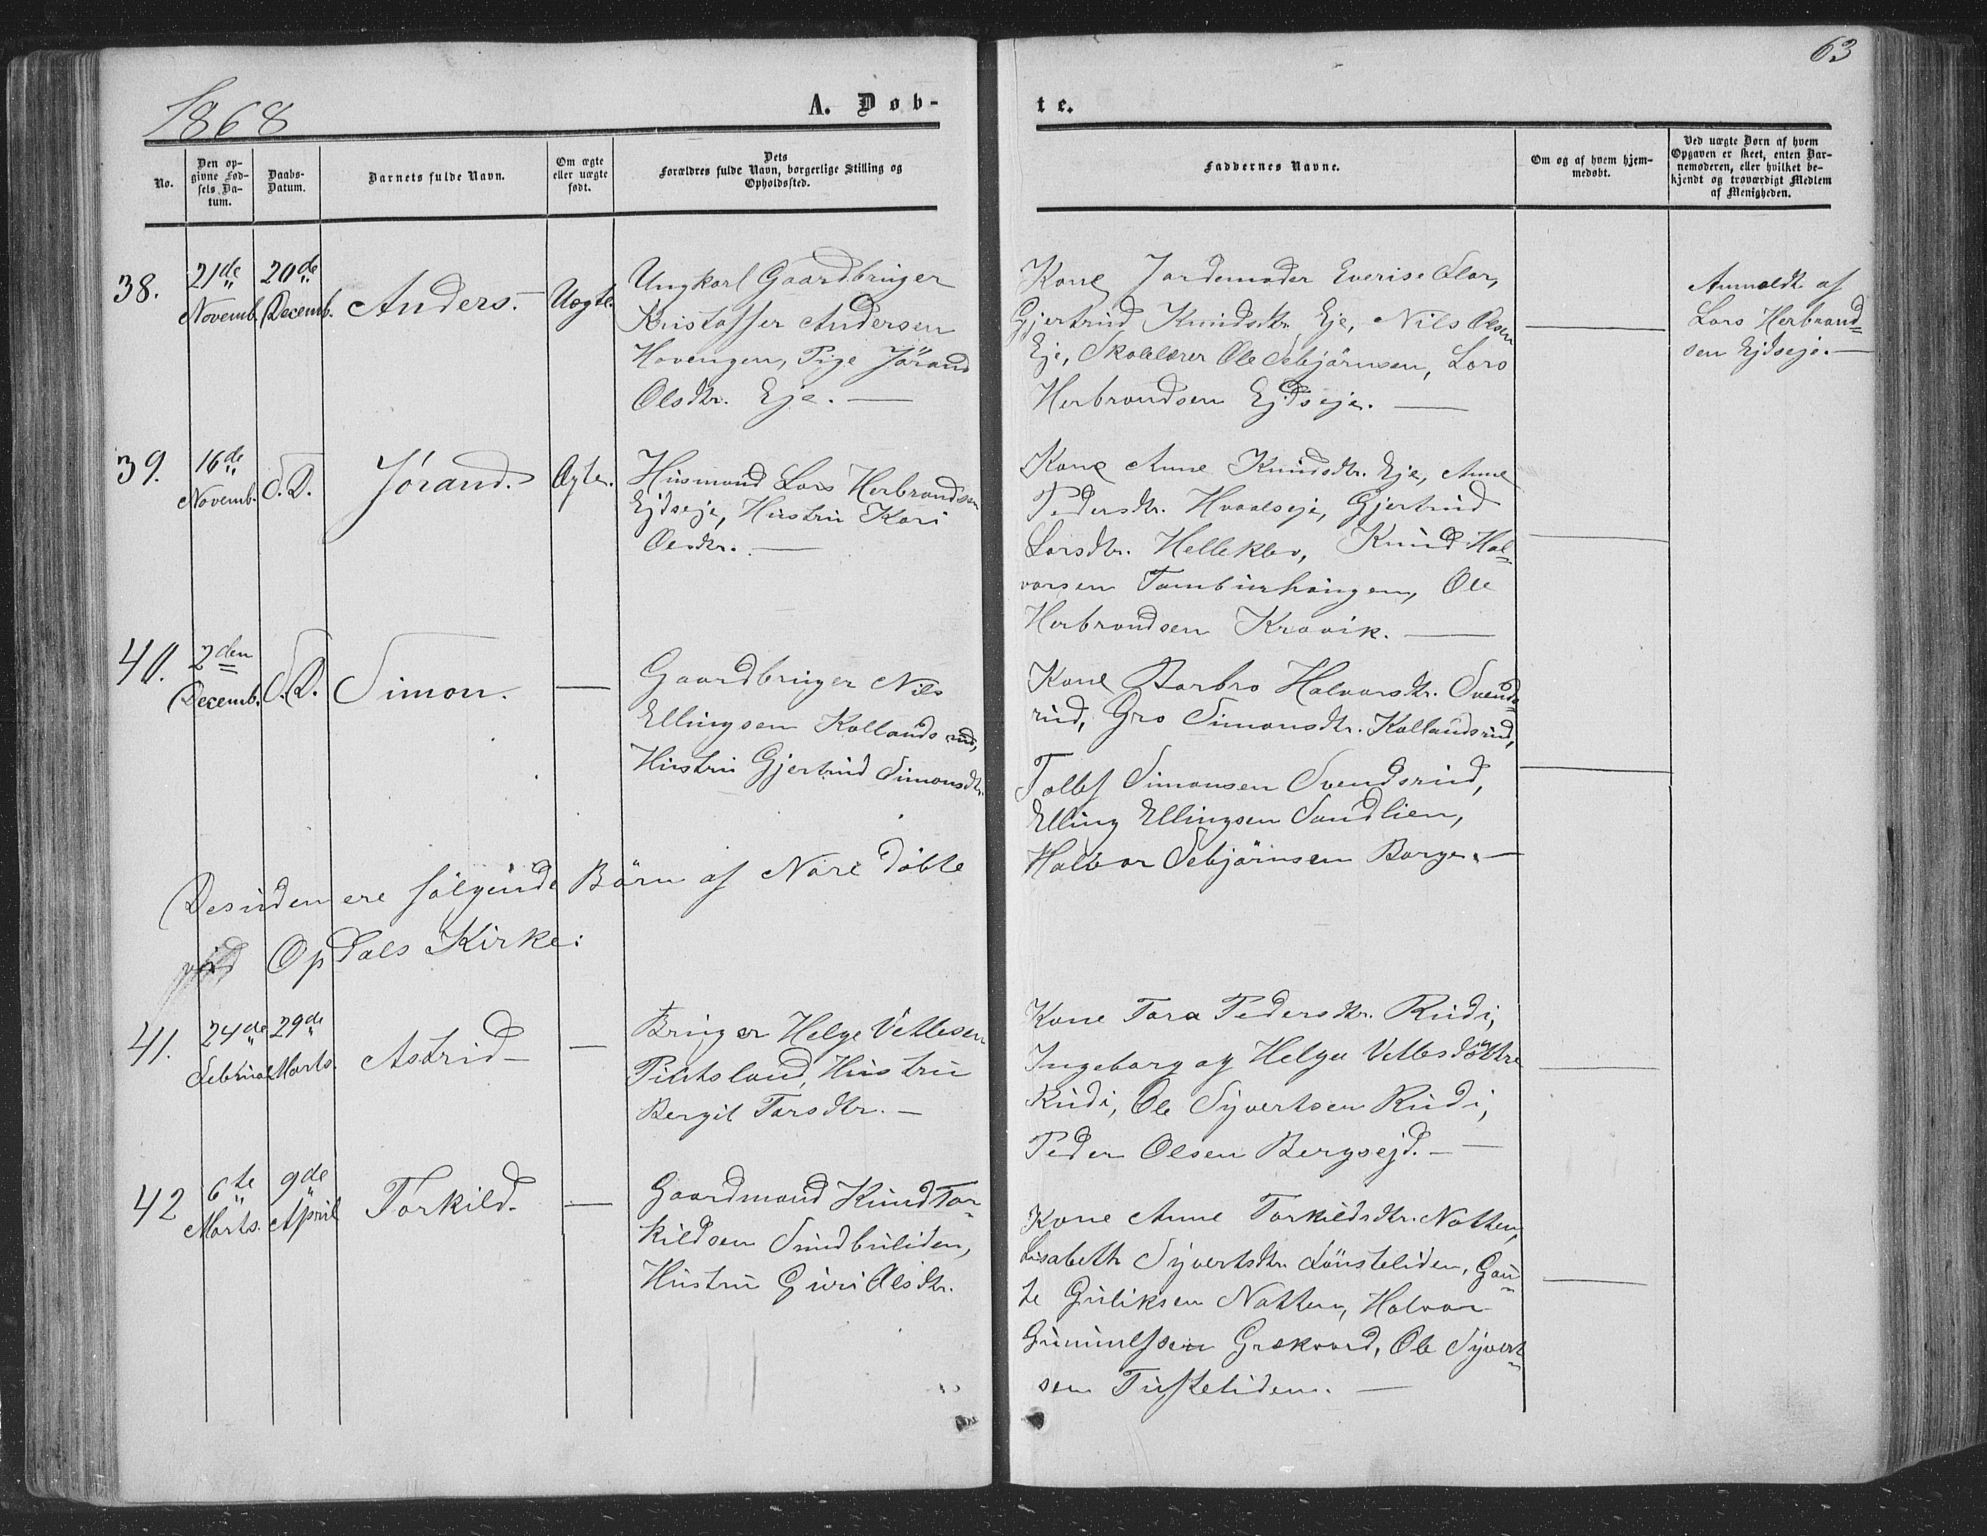 63
1868
A. Døb-
te.
No.
Den op-
givne Fød-
sels Da-
tum.
Daabs-
Datum.
Barnets fulde Navn.
Om ægte
eller uægte
født.
Dets
Forældres fulde Navn, borgerlige Stilling og
Opholdssted.
Faddernes Navne.
Om og af hvem hjem-
medøbt.
Ved uægte Børn af hvem
Opgaven er skeet, enten Bar-
nemoderen, eller hvilket be-
kjendt og troværdigt Medlem
af Menigheden.
38.
21de
Novemb.
20de
Decemb.
Anders.
Uægte.
Ungkarl Gaardbruger
Kristoffer Andersen
Hovengen, Pige Jörand
Olsdtr. Eje. —
Kone Jordemoder Everise Flor,
Gjertrud Knudsdtr. Eje, Nils Olsen
Eje, Skolelærer Ole Sebjörnsen, Lars
Herbrandsen Ejdseje. —
Anmeldt af
Lars Herbrand=
sen Ejdseje. —
39.
16de
Novemb.
S.D.
Jörand.
Ægte.
Husmand Lars Herbrandsen
Ejdseje, Hustru Kari
Olsdtr. —
Kone Anne Knudsdtr. Eje, Anne
Pedersdtr. Hvaalseje, Gjertrud
Larsdtr. Helleklev, Knud Hal=
vorsen Tamburhaugen, Ole
Herbrandsen Kravik. —
40.
2den
Decemb.
S.D.
Simon.
—
Gaardbruger Nils
Ellingsen Kollandsrud,
Hustru Gjertrud Simonsdtr.
Kone Barbro Halvorsdtr. Svends=
rud, Gro Simonsdtr. Kollandsrud,
Tollef Simonsen Svendsrud,
Elling Ellingsen Sandlien,
Halvor Sebjörnsen Borge. —
Desuden ere fölgende Börn af Nore döbte
ved Opdals Kirke:
41.
24de
Februar
29de
Marts.
Astrid —
—
Bruger Helge Vetlesen
Hustru
Bergit Torsdtr. —
Kone Tora Pedersdtr. Rudi,
Ingeborg og Helga Vetlesdöttre
Rudi, Ole Syvertsen Rudi,
Peder Olsen Bergsejd. —
42
6te
Marts.
9de
April
Torkild.
—
Gaardmand Knud Tor=
kildsen Sundbuliden,
Hustru Guri Olsdtr.
Kone Anne Torkildsdtr. Notten,
Lisabeth Syvertsdtr. Lönsteliden, Gau=
te Guliksen Notten, Halvor
Gunnulfsen Grækvard, Ole Syvert=
sen Tufteliden. —